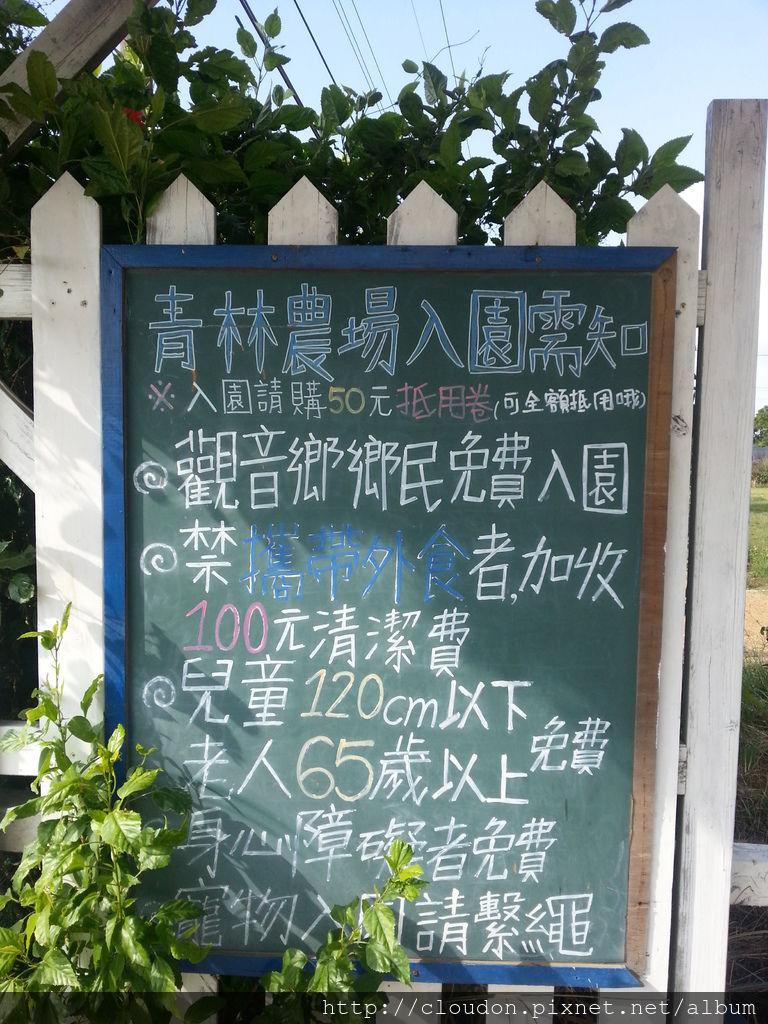 青林農場入園需知
※入園請購50元抵用卷(可全額抵用哦)
觀音鄉鄉民免費入園
禁攜帶外食者,加收
100元清潔費
兒童120cm以下
老人65歲以上免費
身心障礙者免費
寵物入園請繫繩
http://cloudon.pixnet.net/album